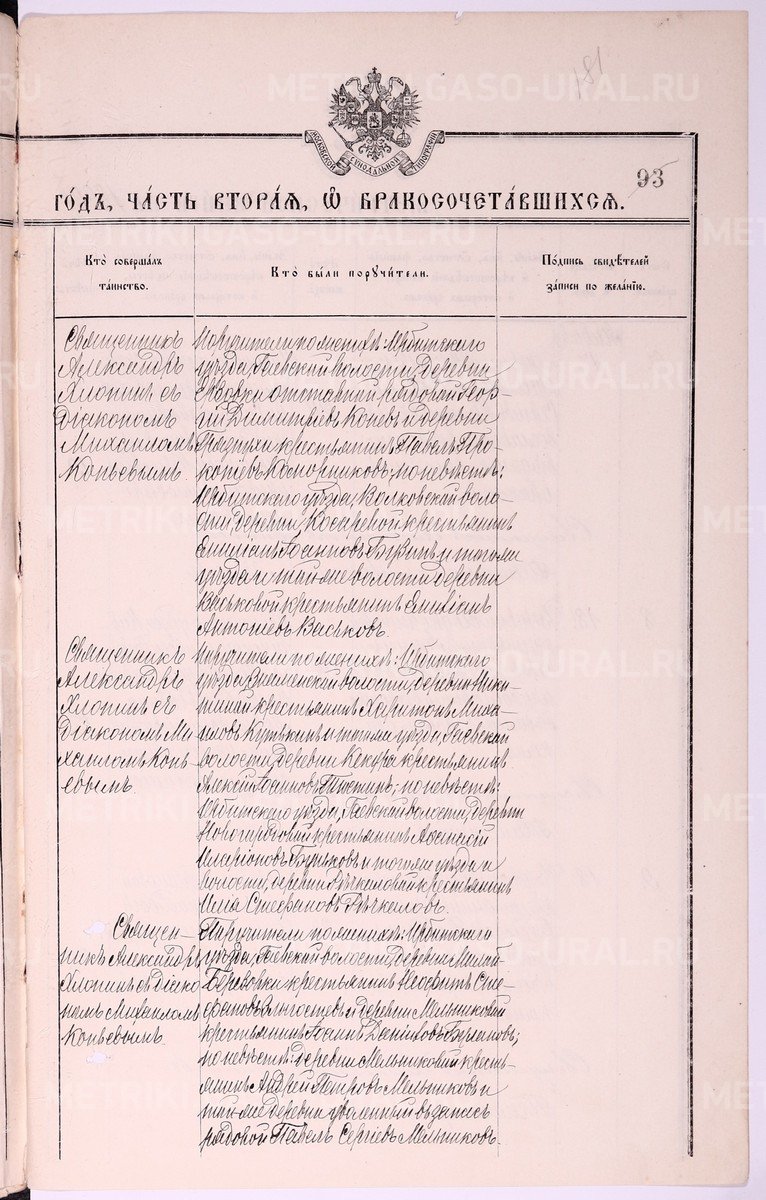 181
МОСКОВСКОЙ СѴНОДАЛЬНОЙ ТИПОГРАФІИ
93
ГОДЪ, ЧАСТЬ ВТОРАЯ, Ѡ БРАКОСОЧЕТАВШИХСЯ.
Кто совершалъ
таинство.
Кто были поручители.
Подпись свидѣтелей
записи по желанію.
Священникъ
Александръ
Хлопинъ съ
Діакономъ
Михаиломъ
Копьевымъ.
Поручители по женихѣ: Ирбитскаго
уѣзда, Гаевской волости, деревни
отставной рядовой Геор-
гій Димитріевъ Коневъ и деревни
Грязнухи крестьянинъ Павелъ Про-
копіевъ Каморниковъ; по невѣстѣ:
Ирбитскаго уѣзда, Волковской воло-
сти, деревни Косаревой крестьянинъ
Емиліанъ Іоанновъ и того же
уѣзда и той же волости деревни
Васьковой крестьянинъ Емиліанъ
Антоніевъ Васьковъ.
Священникъ
Александръ
Хлопинъ съ
Діакономъ Ми-
хаиломъ Копь-
евымъ.
Поручители по женихѣ: Ирбитскаго
уѣзда, Знаменской волости, деревни Ники-
тиной крестьянинъ Харитонъ Миха-
иловъ и того же уѣзда, Гаевской
волости, деревни Кекура крестьянинъ
Алексѣй Іоанновъ; по невѣстѣ:
Ирбитскаго уѣзда, Гаевской волости, деревни
Новогородовой крестьянинъ Аѳанасій
Иларіоновъ Буньковъ и того же уѣзда и
волости, деревни Рѣчкаловой крестьянинъ
Илья Стефановъ Рѣчкаловъ.
Священ-
никъ Александръ
Хлопинъ съ Діако-
номъ Михаиломъ
Копьевымъ.
Поручители по женихѣ: Ирбитскаго
уѣзда, Гаевской волости, деревни Малой
Березовки крестьянинъ Неофитъ Сте-
фановъ и деревни Мельниковой
крестьянинъ Іоаннъ Даніиловъ Бурлановъ;
по невѣстѣ: деревни Мельниковой кресть-
янинъ Андрей Петровъ Мельниковъ и
той же деревни уволенный въ запасъ
рядовой Павелъ Сергіевъ Мельниковъ.